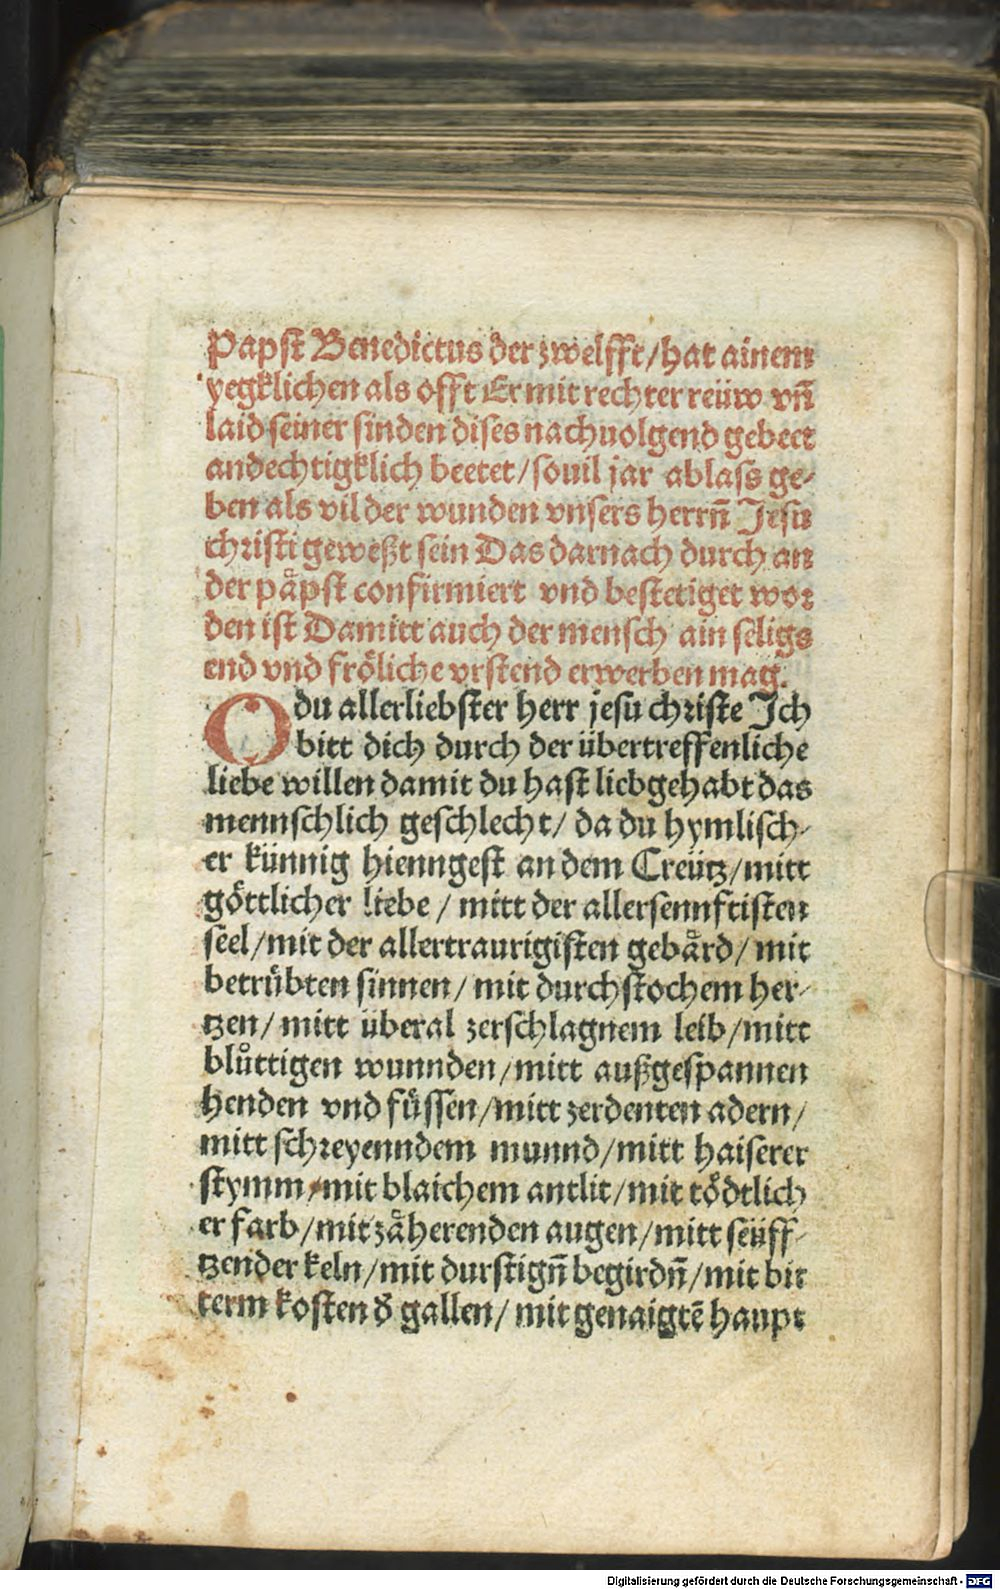 Papst Benedictus der zwelfft/hat ainem
yegklichen als offt Er mit rechter reüw vn̄
laid seiner sinden dises nachuolgend gebect
andechtigklich beetet/souil jar ablass ge-
ben als vil der wunden vnsers herrn̄ Jesu
christi geweßt sein Das darnach durch an
der pa̎pst confirmiert vnd bestetiget wor
den ist Damitt auch der mensch ain seligs
end vnd fröliche vrstend erwerben mag.
O du allerliebster herr jesu christe Ich
bitt dich durch der übertreffenliche
liebe willen damit du hast liebgehabt das
mennschlich geschlecht/ da du hymlisch-
er künnig hienngest an dem Creütz/mitt
göttlicher liebe / mitt der allersennftisten
seel/mit der allertraurigisten gebärd/ mit
betrübten sinnen/ mit durchstochem her-
tzen/ mitt überal zerschlagnem leib/mitt
blůttigen wunnden/mitt außgespannen
henden vnd füssen/mitt zerdenten adern/
mitt schreyenndem munnd/mitt haiserer
stymm/mit blaichem antlit/mit tödtlich
er farb/mit zäherenden augen/mitt seüff-
tzender keln/mit durstign̄ begirdn̄/mit bit
term kosten d̄ gallen/ mit genaigtē haupt
Digitalisierung gefördert durch die Deutsche Forschungsgemeinschaft - DFG